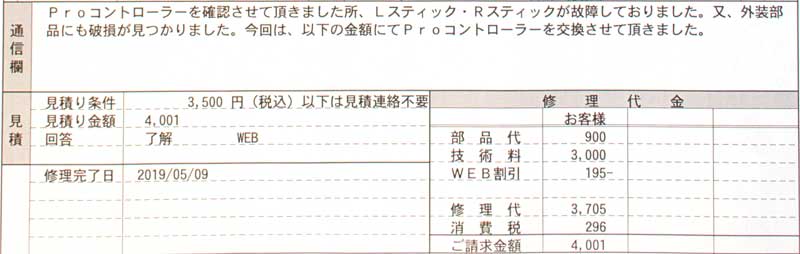 通信欄
Proコントローラーを確認させて頂きました所、Lスティック・Rスティックが故障しておりました。又、外装部
品にも破損が見つかりました。今回は、以下の金額にてProコントローラーを交換させて頂きました。
見積
見積り条件 3,500 円(税込)以下は見積連絡不要
見積り金額 4,001
回答 了解 WEB
修理完了日 2019/05/09
修理代金
お客様
部品代 900
技術料 3,000
WEB割引 195-
修理代 3,705
消費税 296
ご請求金額 4,001